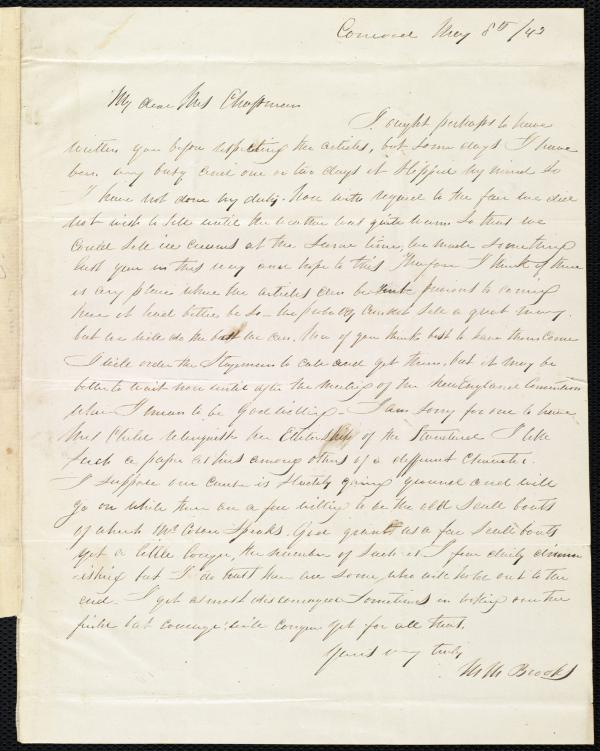 Concord May 8th/43
My dear Mrs Chapman
I ought perhaps to have
written you before respecting the articles, but some days I have
been very busy and one or two days it slipped my mind so
I have not done my duty. Now with regard to the fair we did
not wish to sell until the weather was quite warm so that we
could sell ice creams at the same time, we made something
last year in this way and hope to this. Therefore I think if there
is any place where the articles can be sent previous to coming
here it had better be so - we probably can not sell a great many.
but we will do the best we can. Now if you think best to have them come
I will order the Stageman to call and get them, but it may be
better to wait now until after the meeting of the New England Convention
where I mean to be God willing - I am sorry for one to have
Mrs Child relinquish her Editorship of the Standard I like
such a paper as hers among others of a different character.
I suppose our cause is slowly gaining ground and will
go on while there are a few willing to be the old scull boats
of which Mr Collins speaks. God grant us a few scull boats
yet a little longer, the number of such is I fear daily dimin
-ishing but I do trust there are some, who will hold out to the
end. I get almost discouraged sometimes in looking over the
field but courage! will conquer yet for all that.
Yours very truly
M M Brooks